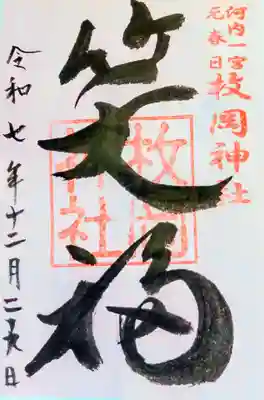 河内一宮
元春日
枚岡神社
笑福
枚岡
神社
令和七年十二月二十九日